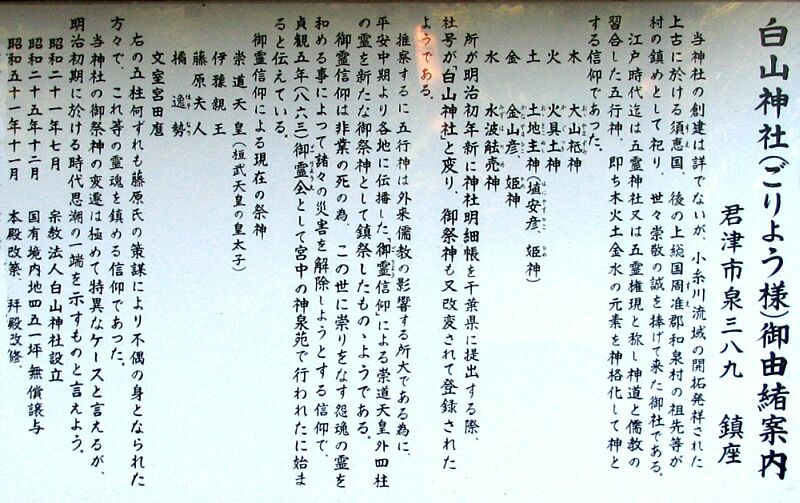 白山神社(ごりよう様)御由緒案内
君津市泉三八九　鎮座
当神社の創建は詳でないが、小糸川流域の開拓発祥された
上古に於ける須恵国、後の上総国周准郡和泉村の祖先等が
村の鎮めとして祀り、世々崇敬の誠を捧げて来た御社である。
江戸時代迄は五霊神社又は五霊権現と称し神道と儒教の
習合した五行神、即ち木火土金水の元素を神格化して神と
する信仰であった。
木　大山祗神
火　火具土神
土　土地主神(埴安彦、姫神)
金　金山彦、姫神
水　水波能売神
所が明治初年新に神社明細帳を千葉県に提出する際、
社号が「白山神社」と変り、御祭神も又改変されて登録された
ようである。
推察するに五行神は外来儒教の影響する所大である為に、
平安中期より各地に伝播した「御霊信仰」による崇道天皇外四柱
の霊を新たな御祭神として鎮祭したものゝようである。
御霊信仰は非業の死の為、この世に祟りをなす怨魂の霊を
和める事によつて諸々の災害を解除しようとする信仰で、
貞観五年(八六三)御霊会として宮中の神泉苑で行われたに始ま
ると伝えている。
御霊信仰による現在の祭神
崇道天皇(桓武天皇の皇太子)
伊豫親王
藤原夫人
橘逸勢
文室宮田麿
右の五柱何ずれも藤原氏の策謀により不偶の身となられた
方々で、これ等の霊魂を鎮める信仰であった。
当神社の御祭神の変遷は極めて特異なケースと言えるが、
明治初期に於ける時代思潮の一端を示すものと言えよう。
昭和二十一年七月　宗教法人白山神社設立
昭和二十五年十二月　国有境内地四五一坪無償譲与
昭和五十一年十一月　本殿改築、拝殿改修、